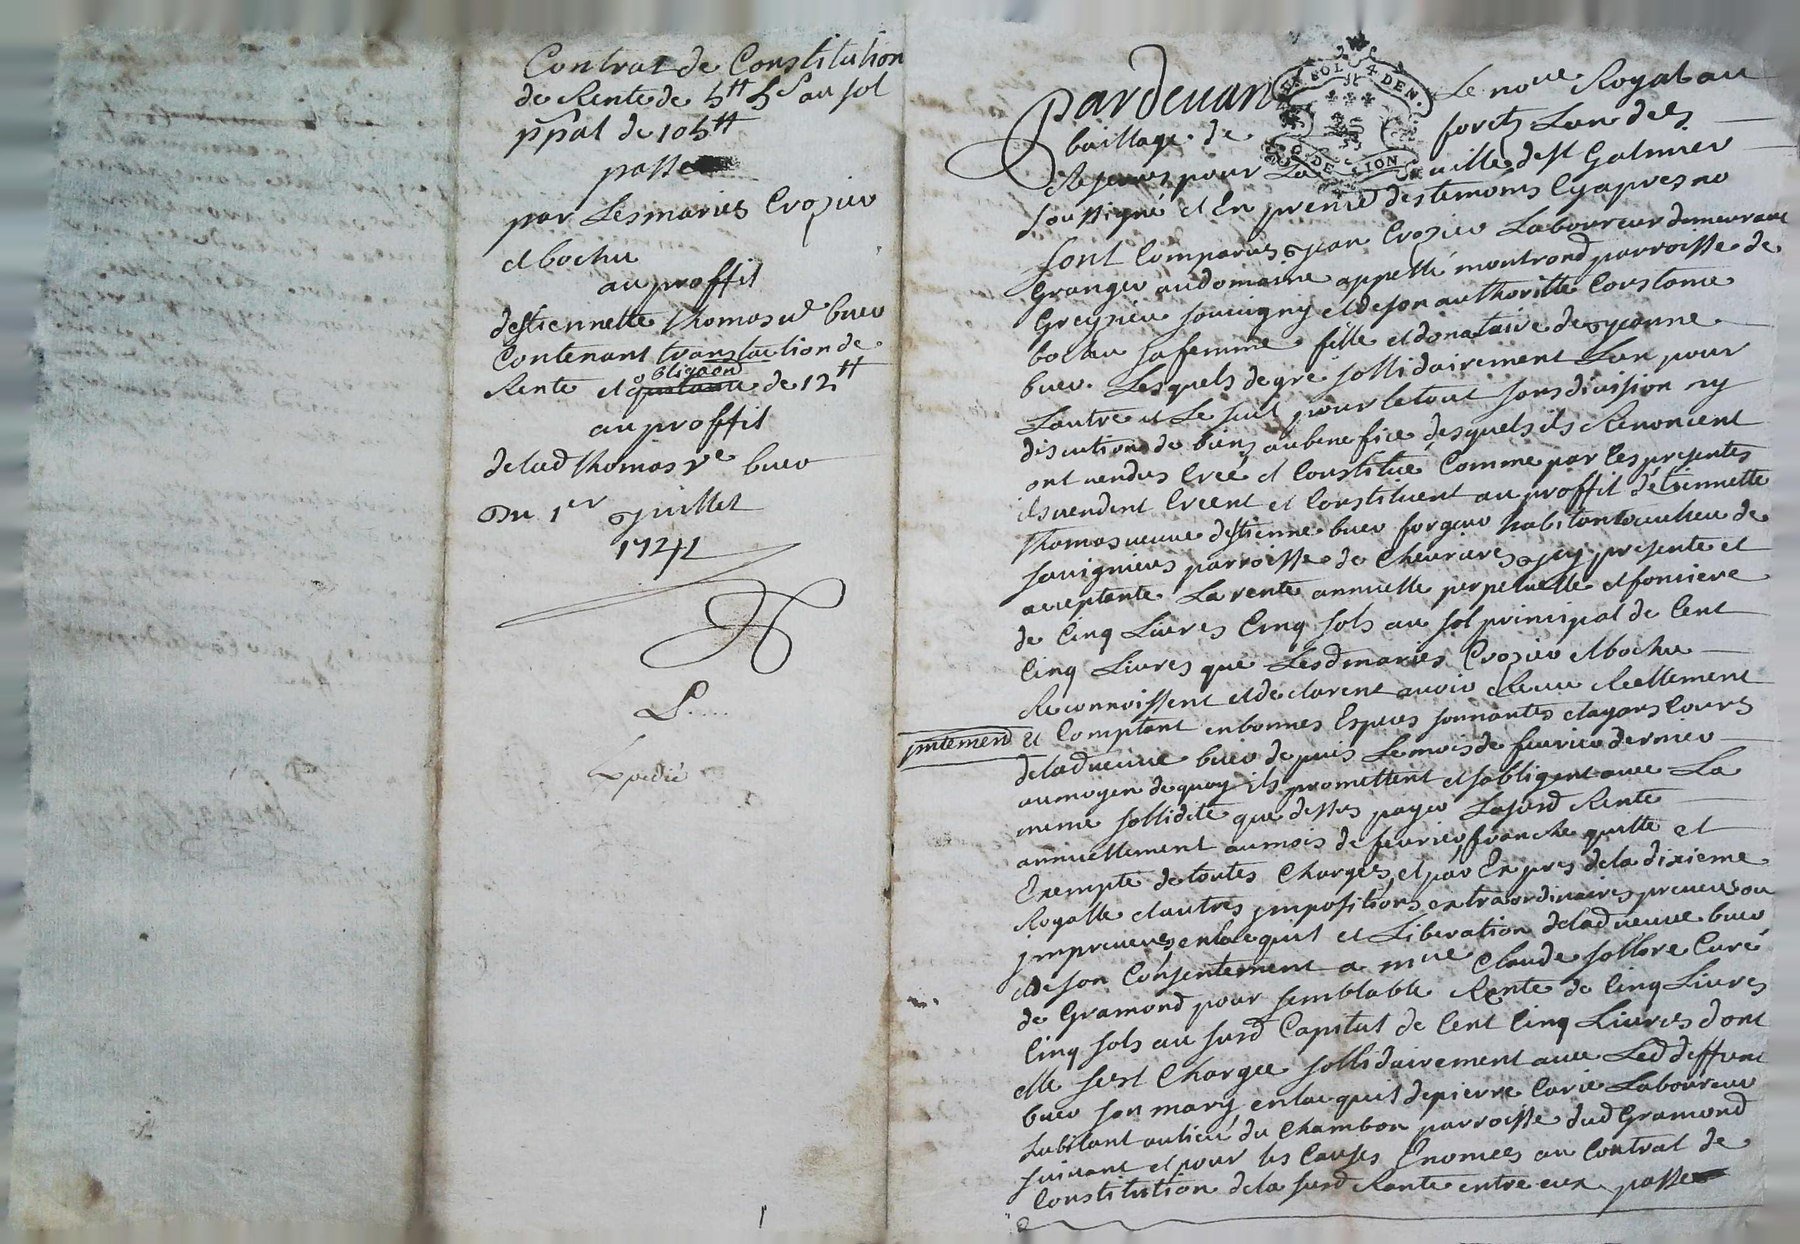 Contrat de Constitution
de Rente de 5tt 5s au sol
ppal de 105tt
passé
par Lesmariés Crozier
et bochu
au proffit
destiennette thomas ve buer
Contenant translaction de
Rente et obligaon de 12tt
au proffit
delad thomas ve buer
Du 1er juillet
1741
Expedié
UN SOL 4 DEN.
G. DE LION
Pardevant Le nore Royal au
baillage de forets Lun des
Reservés pour La ville de st Galmier
soussigné et En presence des temoins Cyapres no
sont Comparus jean Crozier Laboureur demeurant
Granger audomaine appellé montrond parroisse de
Greysieu souvigny et deson authoritté Constance
bochu sa femme fille et donataire de jeanne
buer. Lesquels de gré sollidairement Lun pour
Lautre et Le seul pour le tout sans division ny
discution de biens au benefice desquels ils Renoncent
ont vendus Creé et Constitué Comme par les presentes
ils vendent Creent et Constituent au proffit d'etiennette
thomas veuve destienne buer forgeur habitante au lieu de
souvignieres parroisse de Chevrieres jcy presente et
acceptante La rente annuelle perpetuelle et fonciere
de Cinq Livres Cinq sols au sol principal de Cent
Cinq Livres que Lesd mariés Crozier et bochu
Reconnoissent et declarent avoir Receu Reellement
pntement et Comptant en bonnes Especes sonnantes et ayans Cours
delad veuve buer depuis Le mois de fevrier dernier
au moyen de quoy ils promettent et sobligent avec La
meme sollidité que dessus payer Lasusd Rente
annuellement au mois de fevrier, franche quitte et
Exempte de toutes Charges, et par Expres dela dixieme
Royalle et autres jmpositions extraordinaires preveues ou
jmpreveues, en lacquit et Liberation delad veuve buer
et de son Consentement a mre Claude sollore Curé
de Gramond pour semblable Rente de Cinq Livres
Cinq sols au susd Capital de Cent Cinq Livres dont
elle sest Chargée sollidairement avec Led deffunt
buer son mary en lacquit de pierre Carie Laboureur
habitant au lieu du Chambon parroisse dud Gramond
suivant et pour les Causes Enoncées au Contrat de
Constitution dela susd Rente entre eux passé